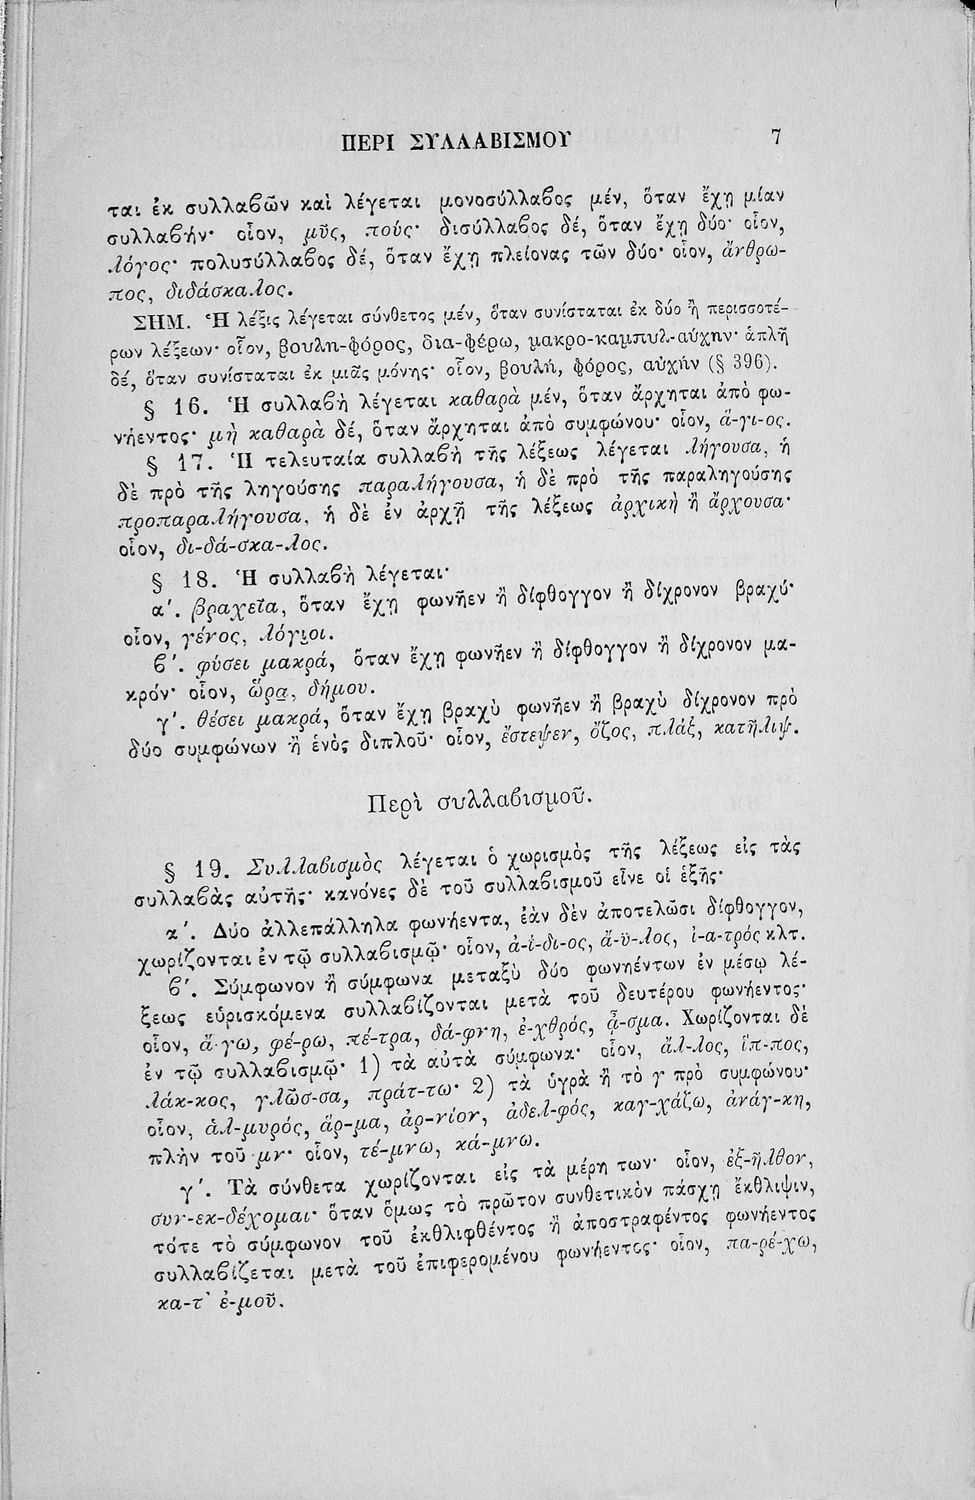 ΠΕΡΙ ΣΥΛΛΑΒΙΣΜΟΥ 7
ται ἐκ συλλαβῶν καὶ λέγεται μονοσύλλαβος μέν, ὅταν ἔχῃ μίαν
συλλαβήν· οἷον, μῦς, πούς· δισύλλαβος δέ, ὅταν ἔχῃ δύο· οἷον,
λόγος· πολυσύλλαβος δέ, ὅταν ἔχῃ πλείονας τῶν δύο· οἷον, ἄνθρω-
πος, διδάσκαλος.
ΣΗΜ. Ἡ λέξις λέγεται σύνθετος μέν, ὅταν συνίσταται ἐκ δύο ἢ περισσοτέ-
ρων λέξεων· οἷον, βουλη-φόρος, δια-φέρω, μακρο-καμπυλ-αύχην· ἁπλῆ
δέ, ὅταν συνίσταται ἐκ μιᾶς μόνης· οἷον, βουλή, φόρος, αὐχήν (§ 396).
§ 16. Ἡ συλλαβὴ λέγεται καθαρὰ μέν, ὅταν ἄρχηται ἀπὸ φω-
νήεντος· μὴ καθαρὰ δέ, ὅταν ἄρχηται ἀπὸ συμφώνου· οἷον, ἅ-γι-ος.
§ 17. Ἡ τελευταία συλλαβὴ τῆς λέξεως λέγεται λήγουσα, ἡ
δὲ πρὸ τῆς ληγούσης παραλήγουσα, ἡ δὲ πρὸ τῆς παραληγούσης
προπαραλήγουσα, ἡ δὲ ἐν ἀρχῇ τῆς λέξεως ἀρχικὴ ἢ ἄρχουσα·
οἷον, δι-δά-σκα-λος.
§ 18. Ἡ συλλαβὴ λέγεται·
α΄. βραχεῖα, ὅταν ἔχῃ φωνῆεν ἢ δίφθογγον ἢ δίχρονον βραχύ·
οἷον, γένος, λόγιοι.
β΄. φύσει μακρά, ὅταν ἔχῃ φωνῆεν ἢ δίφθογγον ἢ δίχρονον μα-
κρόν· οἷον, ὥρα, δήμου.
γ΄. θέσει μακρά, ὅταν ἔχῃ βραχὺ φωνῆεν ἢ βραχὺ δίχρονον πρὸ
δύο συμφώνων ἢ ἑνὸς διπλοῦ· οἷον, ἔστεψεν, ὄζος, πλάξ, κατῆλιψ.
Περὶ συλλαβισμοῦ.
§ 19. Συλλαβισμὸς λέγεται ὁ χωρισμὸς τῆς λέξεως εἰς τὰς
συλλαβὰς αὐτῆς· κανόνες δὲ τοῦ συλλαβισμοῦ εἶνε οἱ ἑξῆς·
α΄. Δύο ἀλλεπάλληλα φωνήεντα, ἐὰν δὲν ἀποτελῶσι δίφθογγον,
χωρίζονται ἐν τῷ συλλαβισμῷ· οἷον, ἀ-ί-δι-ος, ἄ-ϋ-λος, ἰ-α-τρός κλτ.
β΄. Σύμφωνον ἢ σύμφωνα μεταξὺ δύο φωνηέντων ἐν μέσῳ λέ-
ξεως εὑρισκόμενα συλλαβίζονται μετὰ τοῦ δευτέρου φωνήεντος·
οἷον, ἄ-γω, φέ-ρω, πέ-τρα, δά-φνη, ἐ-χθρός, ᾆ-σμα. Χωρίζονται δὲ
ἐν τῷ συλλαβισμῷ· 1) τὰ αὐτὰ σύμφωνα· οἷον, ἄλ-λος, ἵπ-πος,
λάκ-κος, γλῶσ-σα, πράτ-τω· 2) τὰ ὑγρὰ ἢ τὸ γ πρὸ συμφώνου·
οἷον, ἁλ-μυρός, ἅρ-μα, ἀρ-νίον, ἀδελ-φός, καγ-χάζω, ἀνάγ-κη,
πλὴν τοῦ μν· οἷον, τέ-μνω, κά-μνω.
γ΄. Τὰ σύνθετα χωρίζονται εἰς τὰ μέρη των· οἷον, ἐξ-ῆλθον,
συν-εκ-δέχομαι· ὅταν ὅμως τὸ πρῶτον συνθετικὸν πάσχῃ ἔκθλιψιν,
τότε τὸ σύμφωνον τοῦ ἐκθλιφθέντος ἢ ἀποστραφέντος φωνήεντος
συλλαβίζεται μετὰ τοῦ ἐπιφερομένου φωνήεντος· οἷον, πα-ρέ-χω,
κα-τ᾽ ἐ-μοῦ.